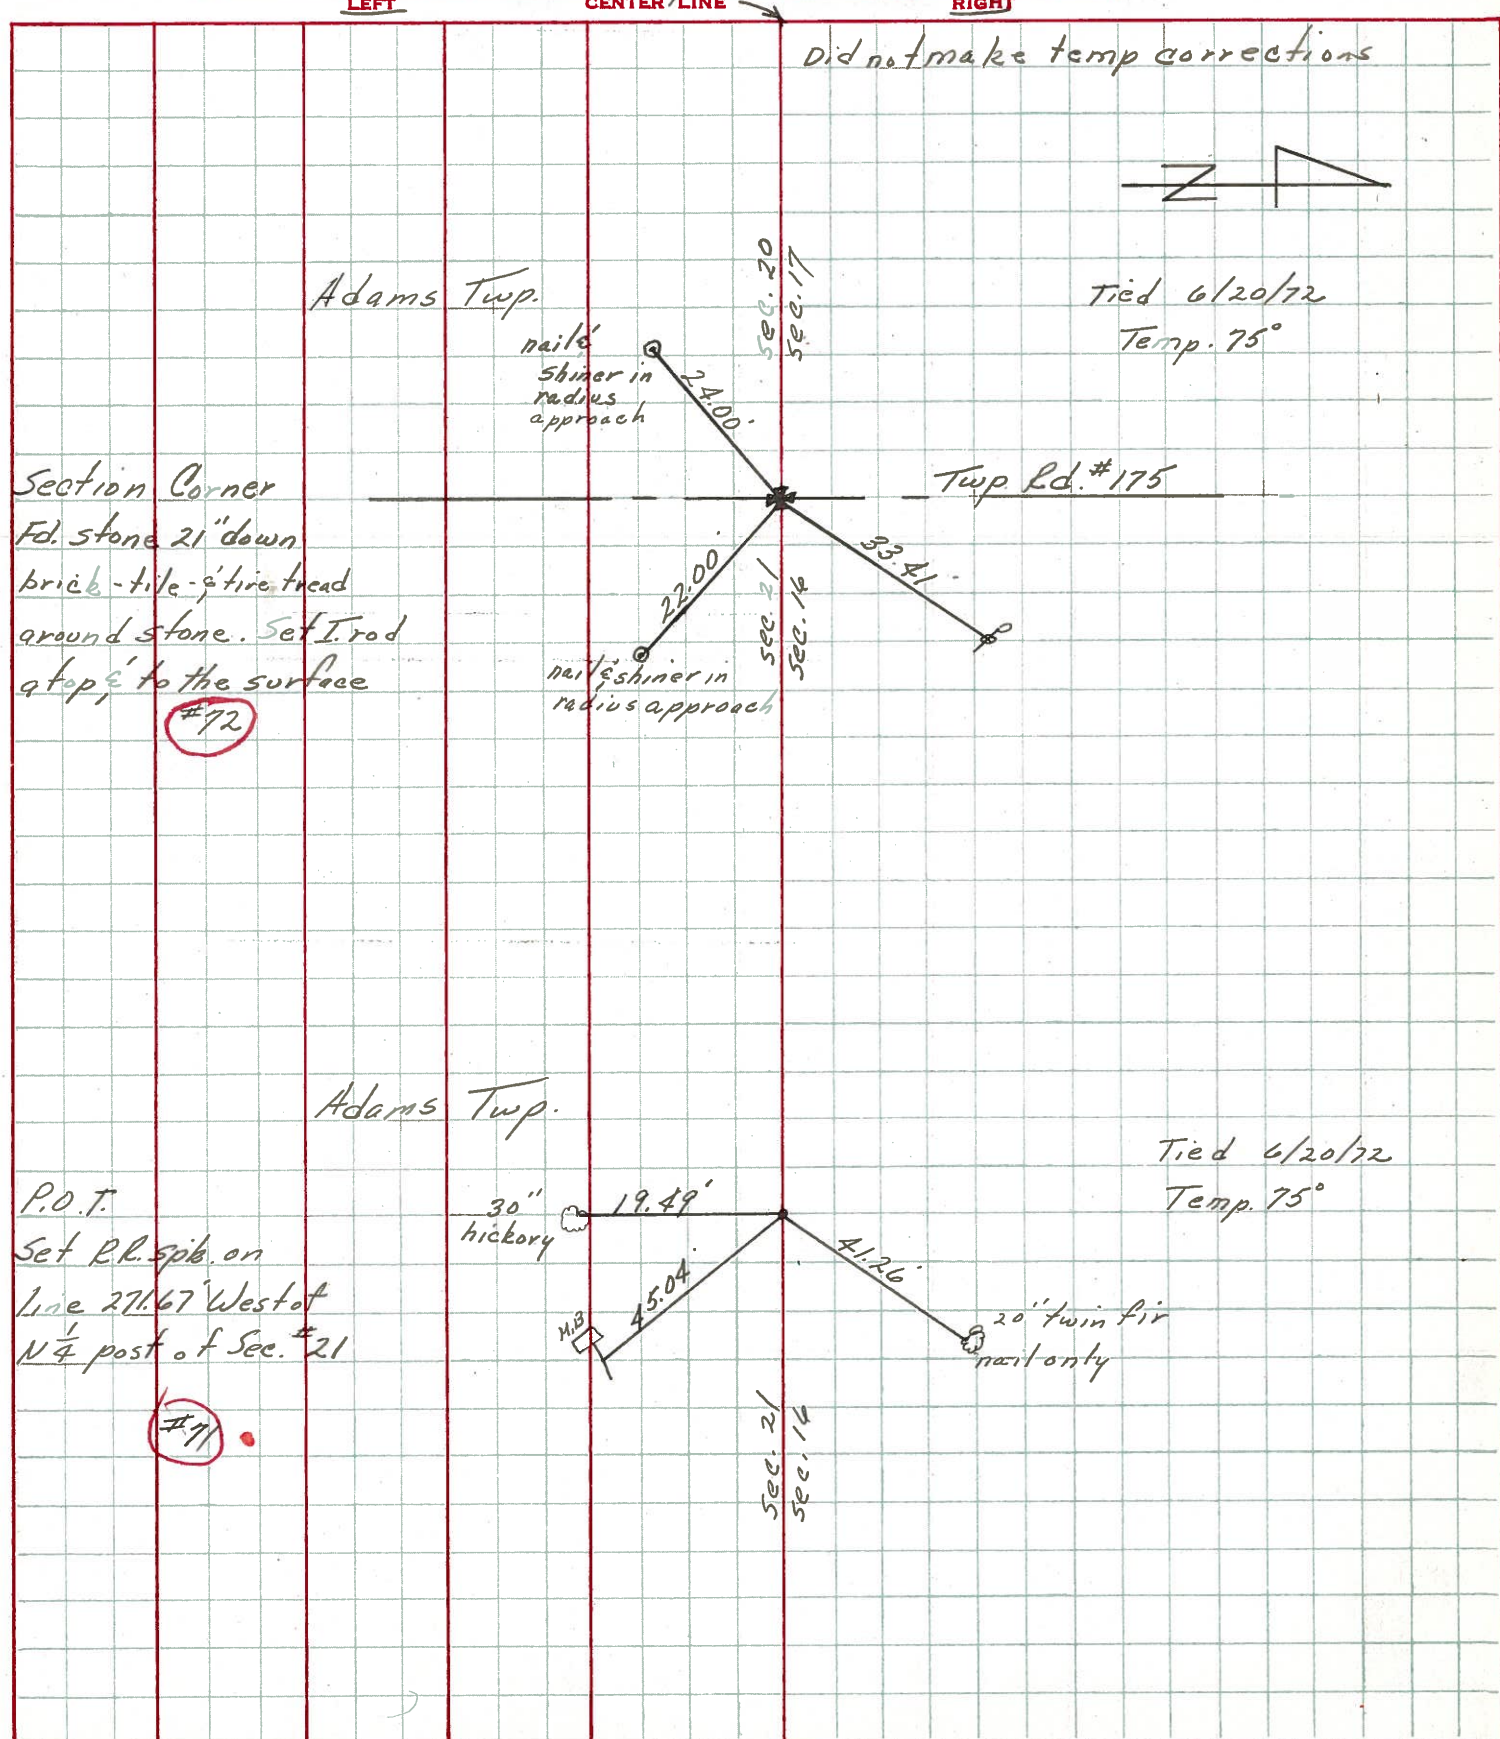 LEFT CENTER LINE RIGHT
Did not make temp corrections
N
Sec. 20
Sec. 17
Adams Twp.
Tied 6/20/72
Temp. 75°
nail &
shiner in
radius
approach
24.00'
Section Corner
Twp. Rd. #175
Fd. stone 21" down
brick - tile - & tire tread
around stone. Set I. rod
atop, & to the surface
#72
22.00'
33.41'
Sec. 21
Sec. 16
nail & shiner in
radius approach
Adams Twp.
Tied 6/20/72
Temp. 75°
P.O.T.
Set R.R. spk. on
Line 271.67' West of
N 1/4 post of Sec. #21
#71
30"
hickory
19.49'
45.04'
41.26'
M.B
20" twin fir
nail only
Sec. 21
Sec. 16